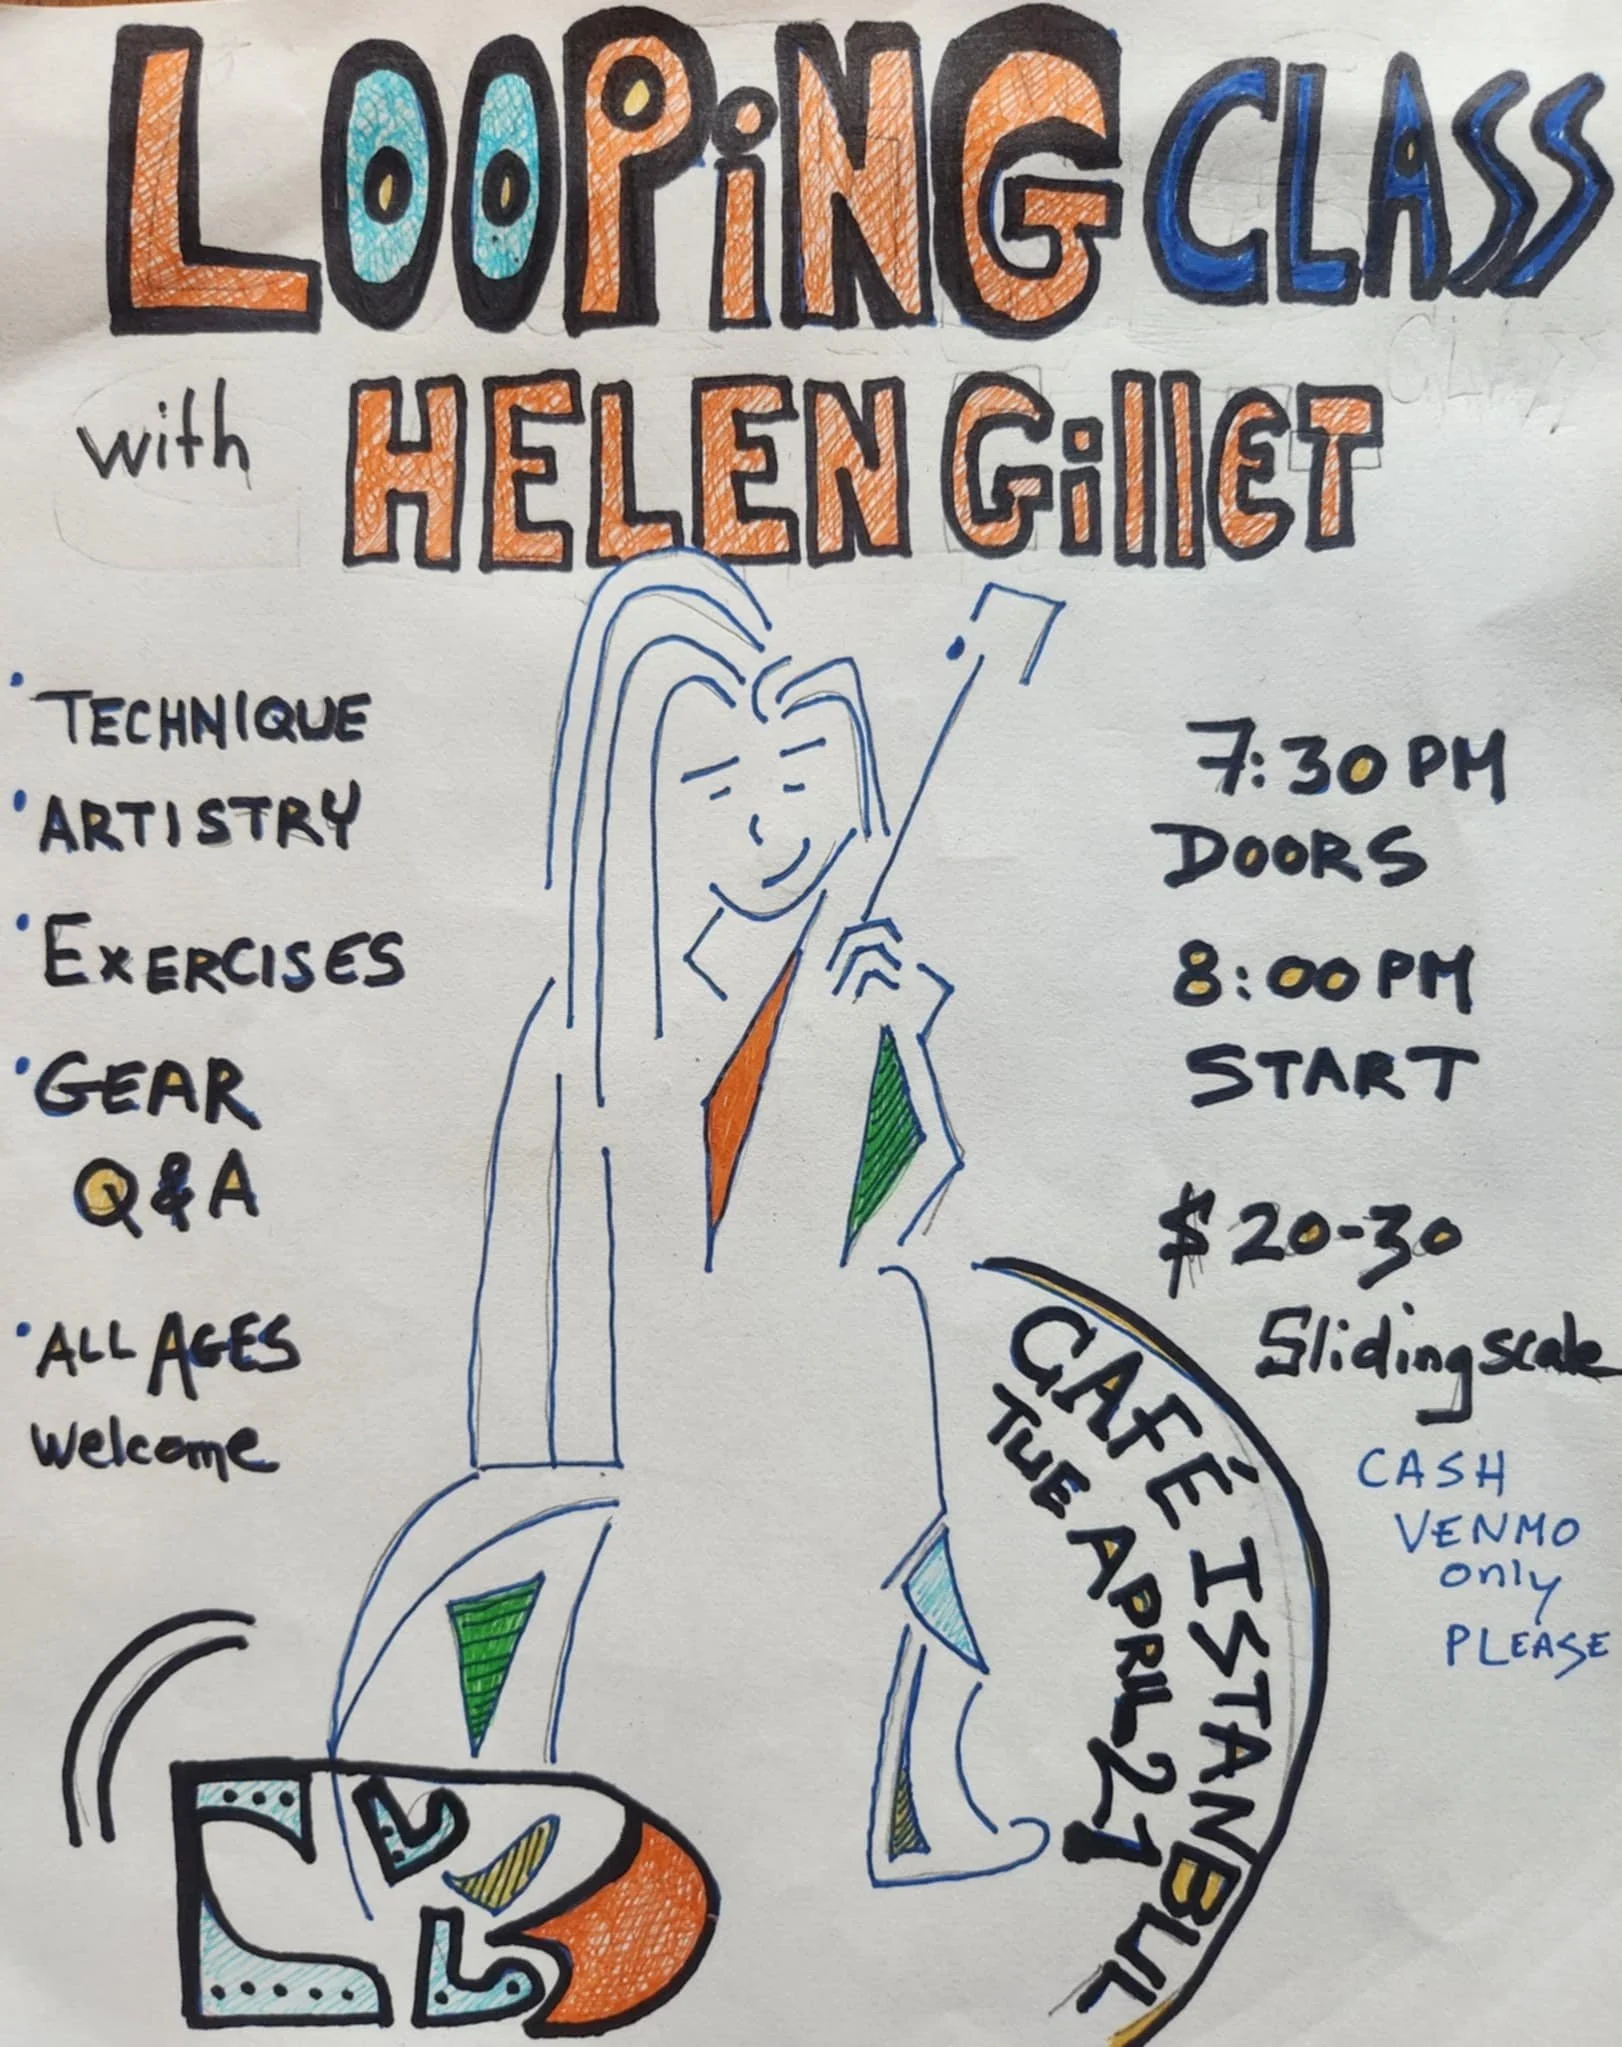 LOOPiNG CLASS
with HELEN GillET
• TECHNIQUE
• ARTISTRY
• EXERCISES
• GEAR
Q & A
• ALL AGES
Welcome
7:30 PM
DOORS
8:00 PM
START
$20-30
Sliding scale
CASH
VENMO
only
PLEASE
CAFÉ ISTANBUL
TUE APRIL 21